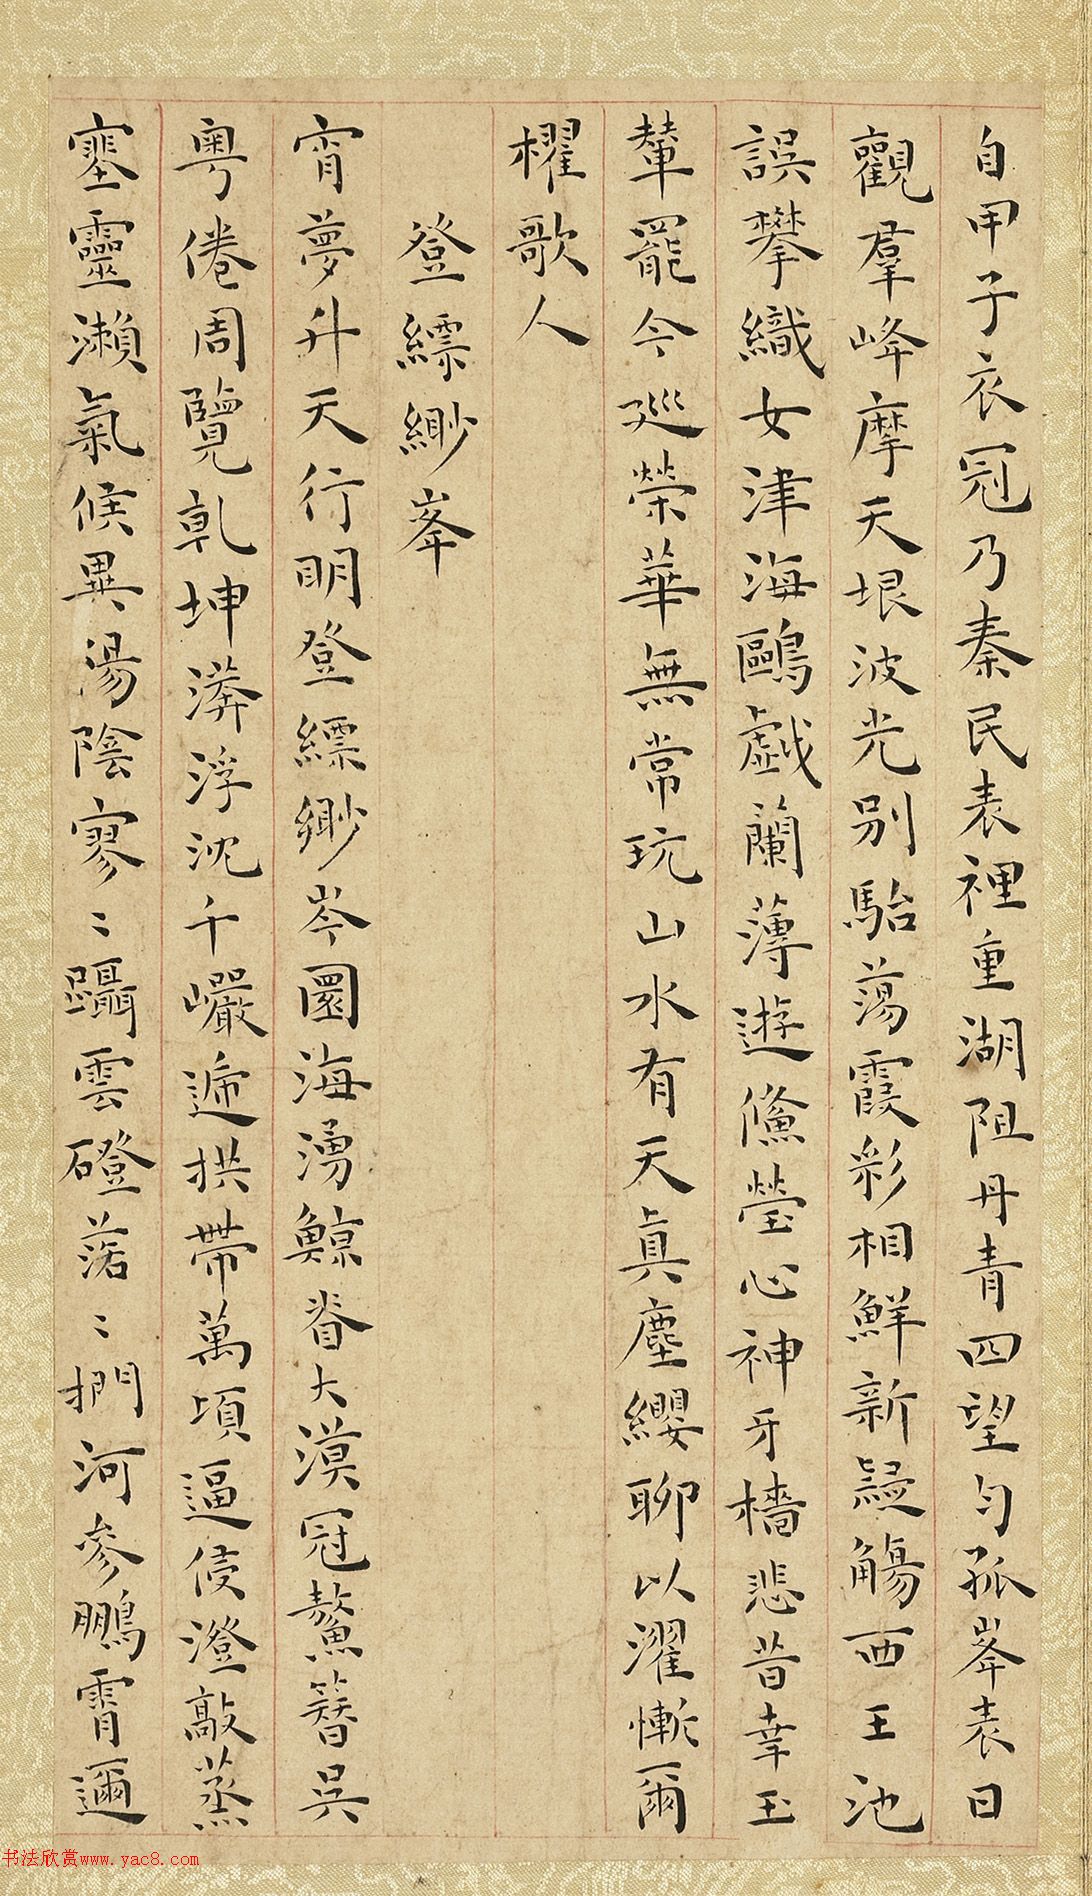 自甲子衣冠乃秦民表裡重湖阻丹青四望勻孤峯表日
觀羣峰摩天垠波光別駘蕩霞彩相鮮新疑觴西王池
誤攀織女津海鷗戯蘭薄遊鯈瑩心神牙檣悲昔幸玉
輦罷今巡榮華無常玩山水有天真塵纓聊以濯慚爾
櫂歌人
登縹緲峯
宵夢升天行明登縹緲岑圜海湧鯨眷大漠冠鰲簪吳
粤倦周覽乹坤漭浮沈千巖遞拱帶萬頃逼侵澄敲蒸
塞靈瀨氣候異湯陰寥〻躡雲磴蕩〻捫河參鵬霄邇
书法欣赏www.yac8.com